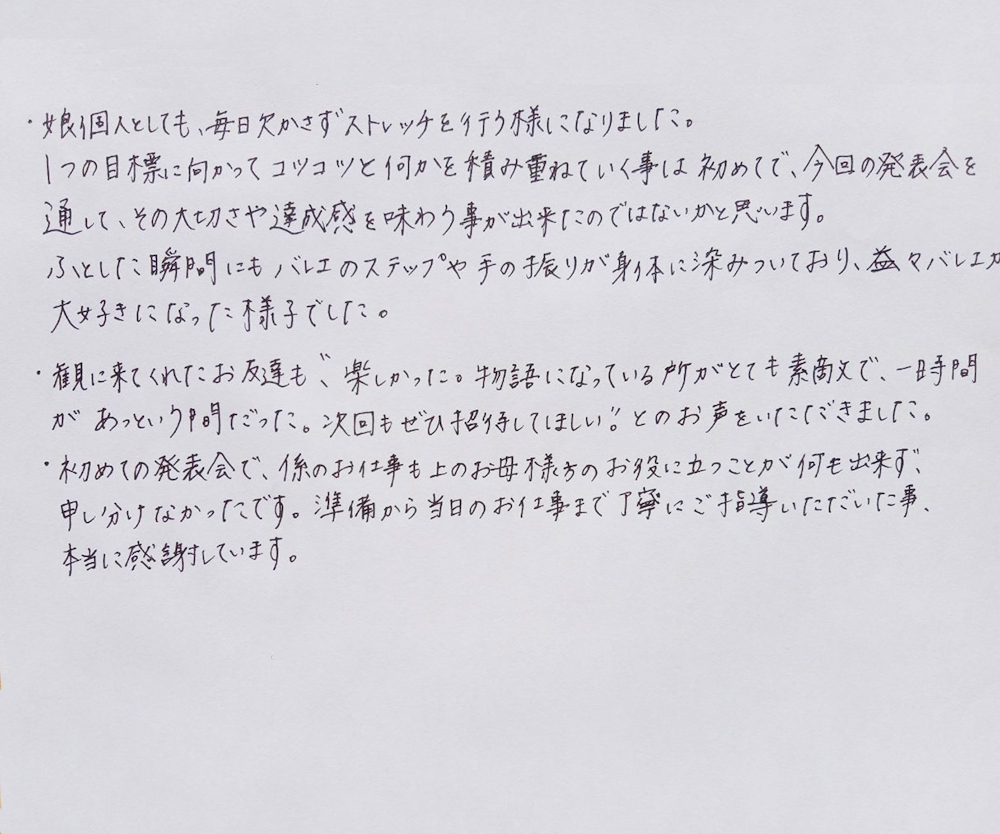 ・娘個人としても、毎日欠かさずストレッチを行う様になりました。
1つの目標に向かってコツコツと何かを積み重ねていく事は初めてで、今回の発表会を
通して、その大切さや達成感を味わう事が出来たのではないかと思います。
ふとした瞬間にもバレエのステップや手の振りが身体に染みついており、益々バレエが
大好きになった様子でした。
・観に来てくれたお友達も〝楽しかった。物語になっている所がとても素敵で、一時間
があっという間だった。次回もぜひ招待してほしい〟とのお声をいただきました。
・初めての発表会で、係のお仕事も上のお母様方のお役に立つことが何も出来ず、
申し分けなかったです。準備から当日のお仕事まで丁寧にご指導いただいた事、
本当に感謝しています。